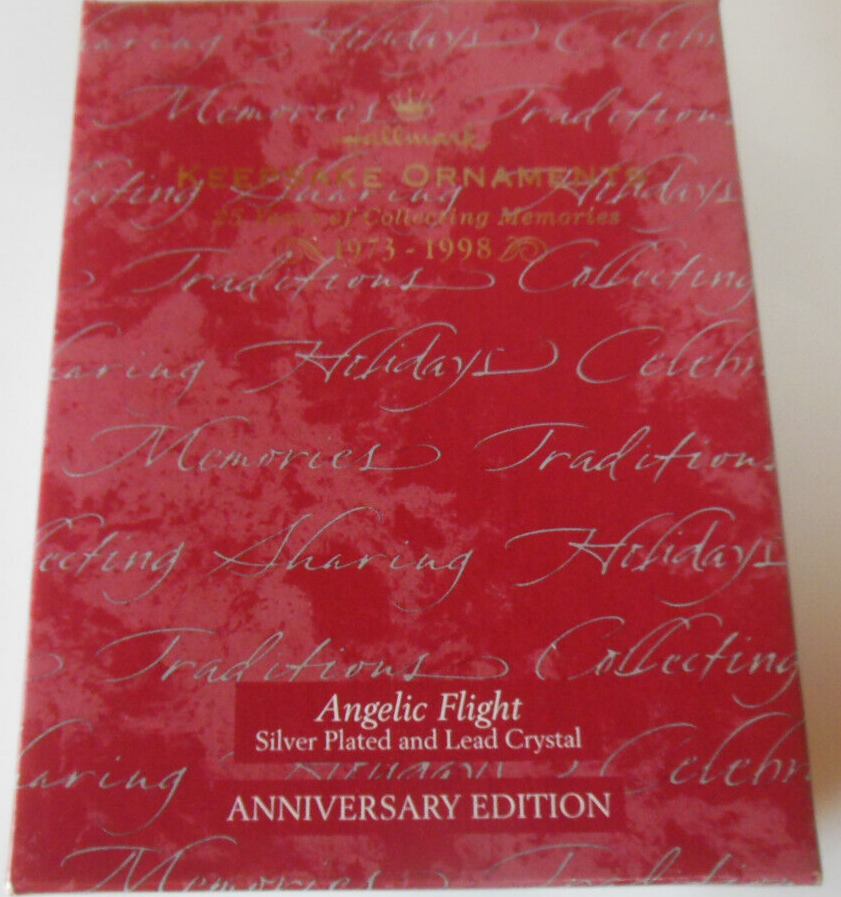 aring Holidays Celebr
Memories Traditions
Hallmark
KEEPSAKE ORNAMENTS
ecting Sharing Holidays
25 Years of Collecting Memories
1973 - 1998
Traditions Collecting
aring Holidays Celebr
Memories Traditions
ecting Sharing Holidays
Traditions Collecting
Angelic Flight
Silver Plated and Lead Crystal
aring Holidays Celebr
ANNIVERSARY EDITION
Memories Traditions